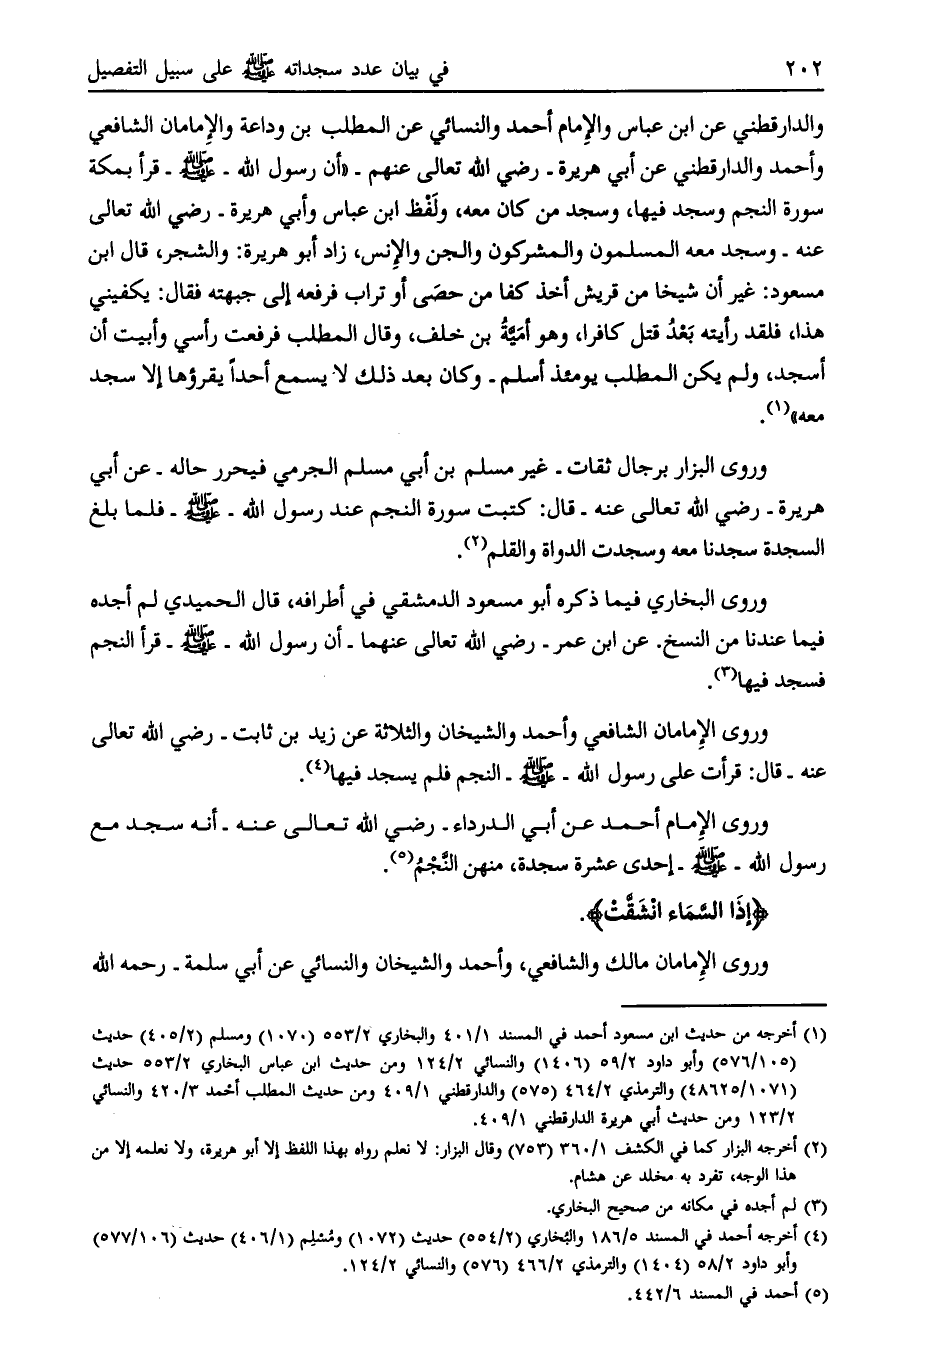 ٢٠٢ في بيان عدد سجداته ﷺ على سبيل التفصيل
والدارقطني عن ابن عباس والإمام أحمد والنسائي عن المطلب بن وداعة والإمامان الشافعي
وأحمد والدارقطني عن أبي هريرة ـ رضي الله تعالى عنهم ـ «أن رسول الله ـ ﷺ ـ قرأ بمكة
سورة النجم وسجد فيها، وسجد من كان معه، ولَفْظ ابن عباس وأبي هريرة ـ رضي الله تعالى
عنه ـ وسجد معه المسلمون والمشركون والجن والإنس، زاد أبو هريرة: والشجر، قال ابن
مسعود: غير أن شيخا من قريش أخذ كفا من حصَى أو تراب فرفعه إلى جبهته فقال: يكفيني
هذا، فلقد رأيته بَعْدُ قتل كافرا، وهو أمَيَّةُ بن خلف، وقال المطلب فرفعت رأسي وأبيت أن
أسجد، ولم يكن المطلب يومئذ أسلم ـ وكان بعد ذلك لا يسمع أحداً يقرؤها إلا سجد
معه»(١).
وروى البزار برجال ثقات ـ غير مسلم بن أبي مسلم الجرمي فيحرر حاله ـ عن أبي
هريرة ـ رضي الله تعالى عنه ـ قال: كتبت سورة النجم عند رسول الله ـ ﷺ ـ فلما بلغ
السجدة سجدنا معه وسجدت الدواة والقلم(٢).
وروى البخاري فيما ذكره أبو مسعود الدمشقي في أطرافه، قال الحميدي لم أجده
فيما عندنا من النسخ. عن ابن عمر ـ رضي الله تعالى عنهما ـ أن رسول الله ـ ﷺ ـ قرأ النجم
فسجد فيها(٣).
وروى الإمامان الشافعي وأحمد والشيخان والثلاثة عن زيد بن ثابت ـ رضي الله تعالى
عنه ـ قال: قرأت على رسول الله ـ ﷺ ـ النجم فلم يسجد فيها(٤).
وروى الإمام أحمد عن أبي الدرداء ـ رضي الله تعالى عنه ـ أنه سجد مع
رسول الله ـ ﷺ ـ إحدى عشرة سجدة، منهن النَّجْمُ(٥).
﴿إذَا السَّمَاء انْشَقَّتْ﴾.
وروى الإمامان مالك والشافعي، وأحمد والشيخان والنسائي عن أبي سلمة ـ رحمه الله
(١) أخرجه من حديث ابن مسعود أحمد في المسند ٤٠١/١ والبخاري ٥٥٣/٢ (١٠٧٠) ومسلم (٤٠٥/٢) حديث
(٥٧٦/١٠٥) وأبو داود ٥٩/٢ (١٤٠٦) والنسائي ١٢٤/٢ ومن حديث ابن عباس البخاري ٥٥٣/٢ حديث
(٤٨٦٢٥/١٠٧١) والترمذي ٤٦٤/٢ (٥٧٥) والدارقطني ٤٠٩/١ ومن حديث المطلب أحمد ٤٢٠/٣ والنسائي
١٢٣/٢ ومن حديث أبي هريرة الدارقطني ٤٠٩/١.
(٢) أخرجه البزار كما في الكشف ٣٦٠/١ (٧٥٣) وقال البزار: لا نعلم رواه بهذا اللفظ إلا أبو هريرة، ولا نعلمه إلا من
هذا الوجه، تفرد به مخلد عن هشام.
(٣) لم أجده في مكانه من صحيح البخاري.
(٤) أخرجه أحمد في المسند ١٨٦/٥ والبُخاري (٥٥٤/٢) حديث (١٠٧٢) ومُسْلِم (٤٠٦/١) حديث (٥٧٧/١٠٦)
وأبو داود ٥٨/٢ (١٤٠٤) والترمذي ٤٦٦/٢ (٥٧٦) والنسائي ١٢٤/٢.
(٥) أحمد في المسند ٤٤٢/٦.